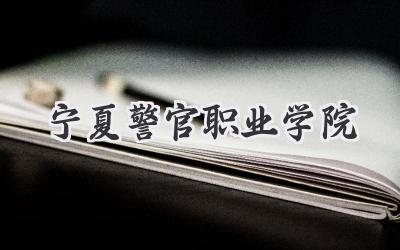 宁夏警官职业学院